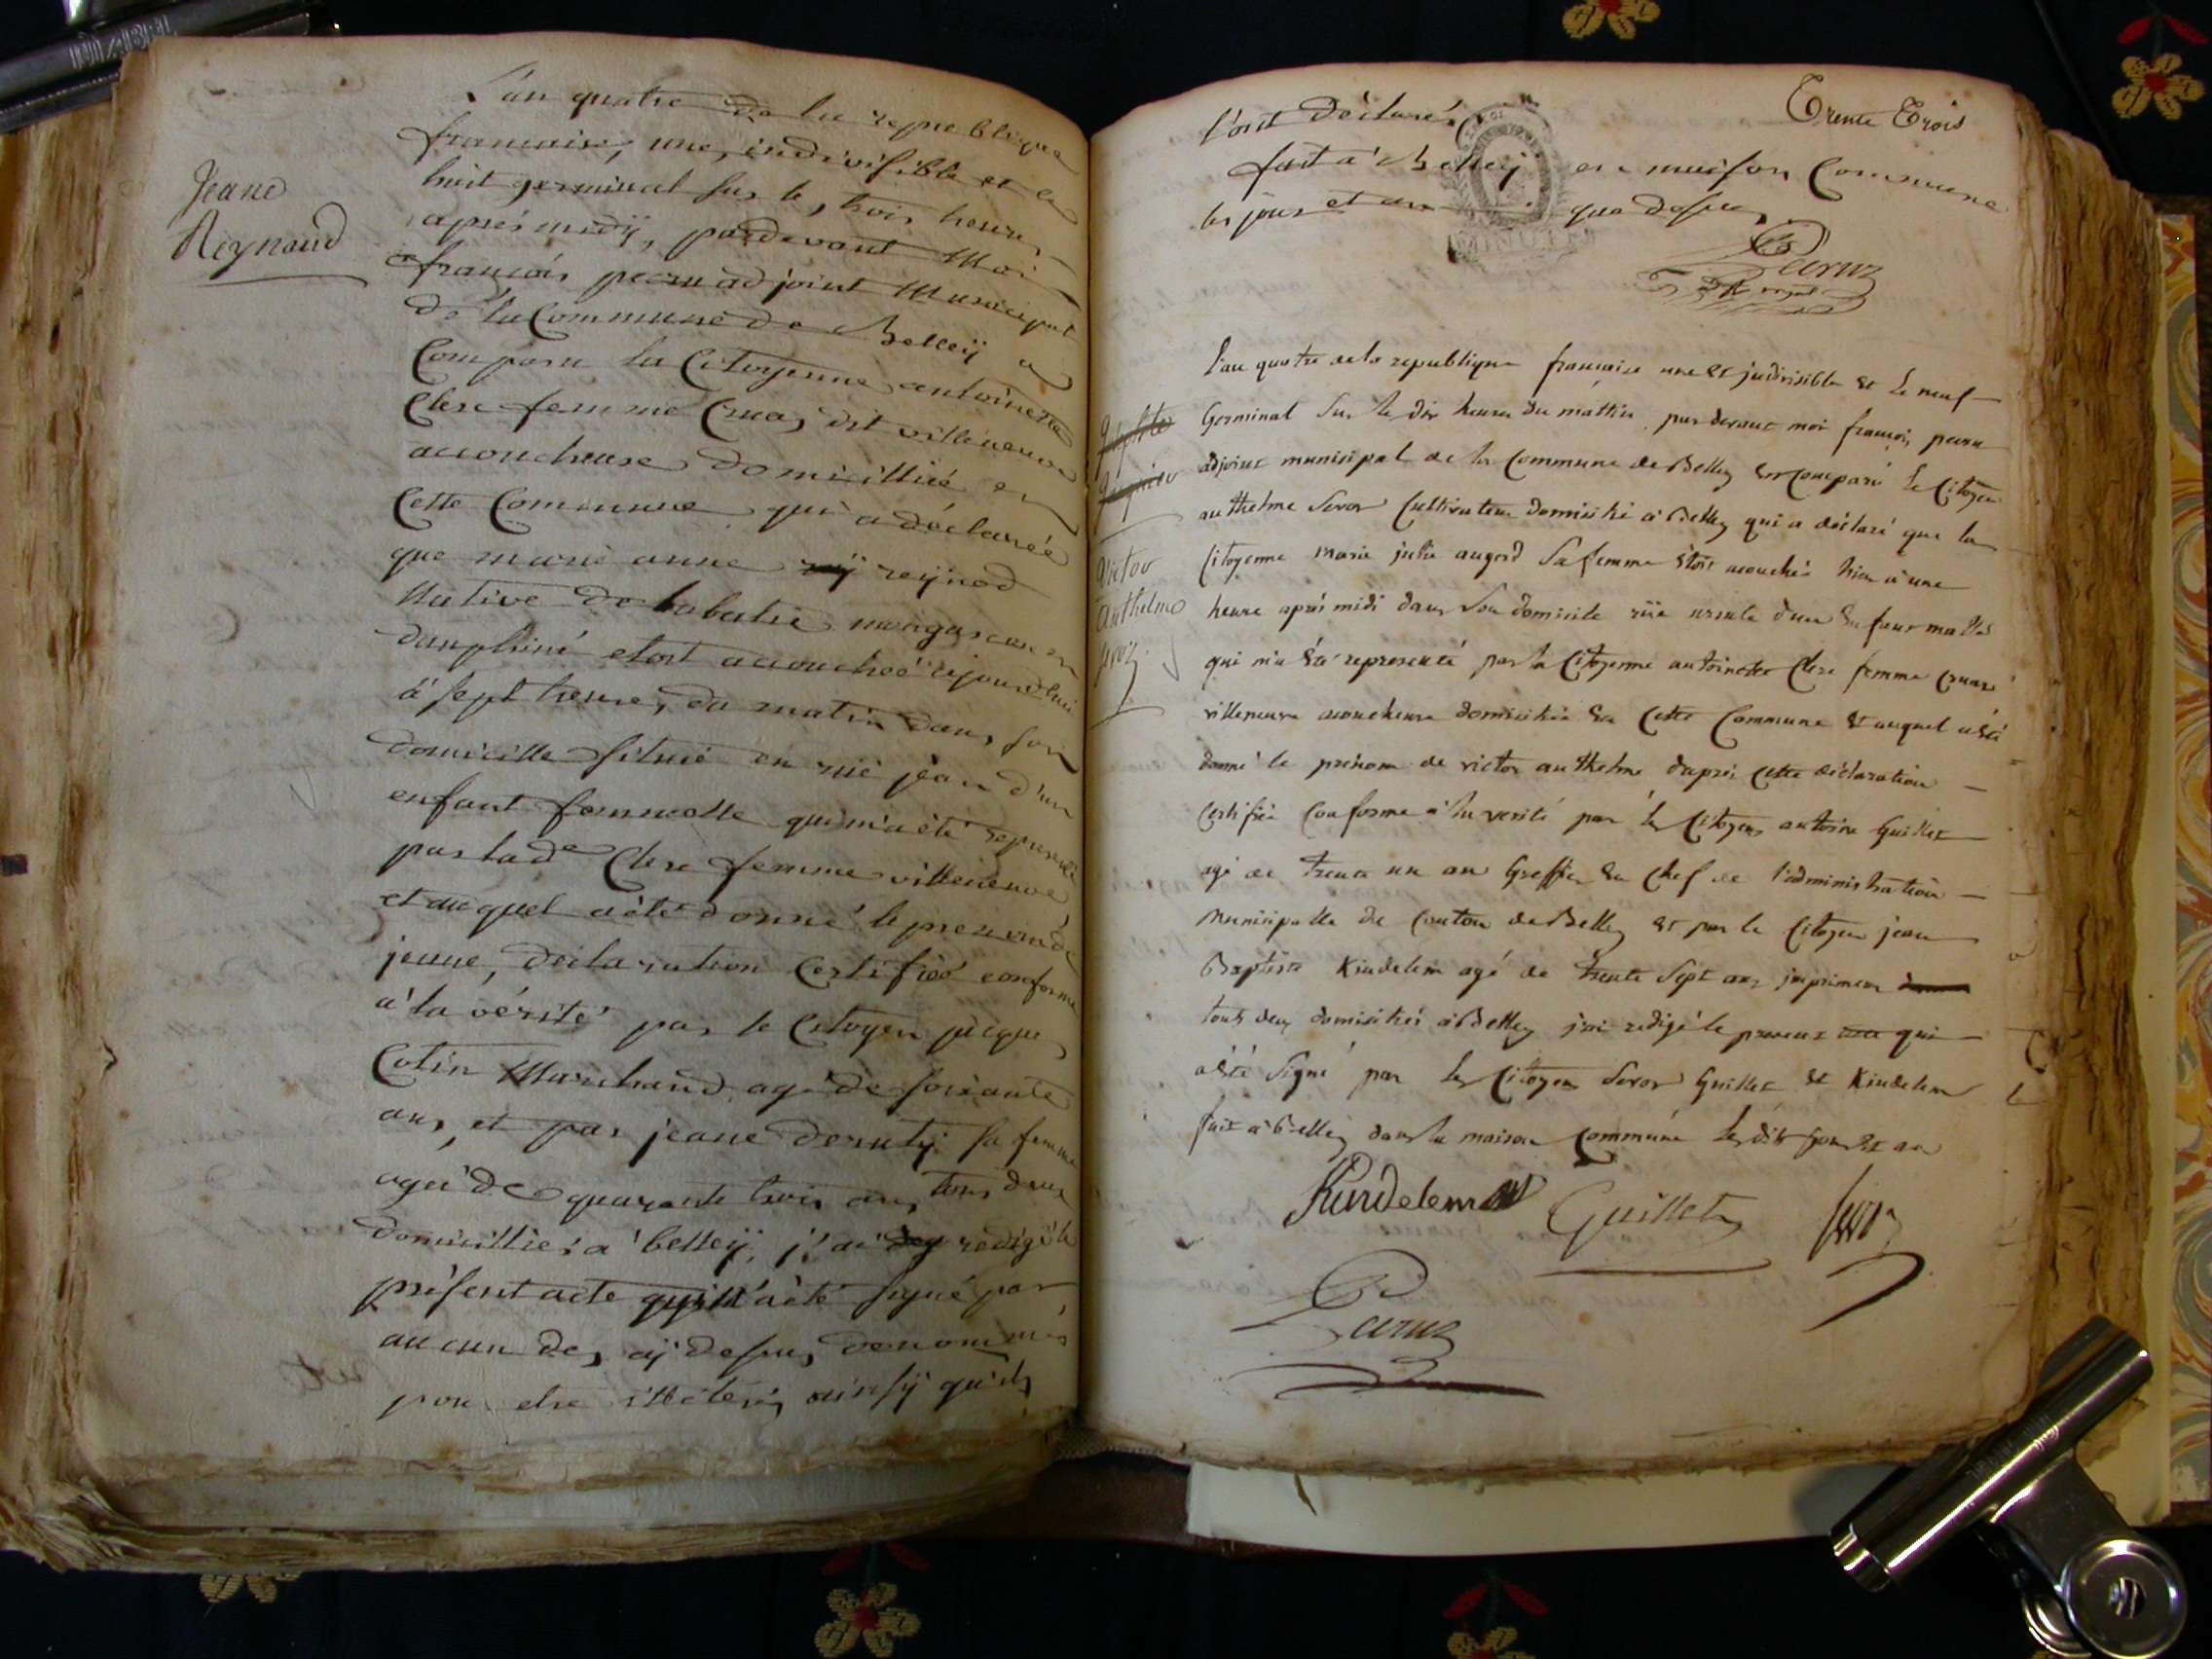 Jeane
Reynaud
L'an quatre de la republique
francaise, une, indivisible et le
huit germinal sur le, trois heures
aprés midÿ, pardevant Moi
francois peru adjoint Municipal
de la Commune de Belleÿ a
Comparu la Citoyenne antoinette
Clerc femme Cruas dit villeneuve
accoucheuse domicilliée en
Cette Commune qui a déclarée
que marie anne reÿnod
Native de en
dauphiné etoit accouchée ajourd'hui
a sept heures du matin dans son
domicille situé en rüe jean d'un
enfant femmelle qui m'a été representé
par lad.e Clerc femme villeneuve
et auquel a été donné le prenom de
jeane, déclaration Certifiée conforme
a la vérité par le Citoyen jacque
Cotin Marchand agé de soixante
ans, et par jeane deruty sa femme
agée de quarante trois ans, tous deux
domicilliés a belleÿ, j'ai redigé le
présent acte qui n'a été signé par
aucun des cÿ dessus denommés
pour etre illiterés ainsÿ qu'ils
Trente Trois
l'ont Déclarés
fait a Belleÿ en maison Commune
les jour et an que dessus
MINUTE
Victor
Anthelme
l'an quatre de la republique francaise une et indivisible et le neuf
Germinal sur le dix heures du mattin par devant moi francois peru
adjoint municipal de la Commune de Belley est comparu le Citoyen
anthelme Sevoz Cultivateur domicilié a Belley qui a déclaré que la
Citoyenne marie julie augerd sa femme etoit acouchée hier a une
heure aprés midi dans son domicile rüe ursule d'un enfant malle
qui m'a été representé par la Citoyenne antoinette Clerc femme cruas
villeneuve acoucheuse domiciliée en Cette Commune et auquel a été
donné le prénom de victor anthelme dapres Cette déclaration
Certifiée conforme a la verité par les Citoyens antoine Guillet
agé de trente un an Greffier en Chef de l'administration
Municipalle du Canton de Belley et par le Citoyen jean
Baptiste Kindelem agé de trente sept ans imprimeur
touts deux domiciliés a Belley j'ai redigé le present qui
a été signé par les Citoyens Sevoz Guillet et Kindelem
fait a Belley dans la maison Commune les dits jour et an
Kindelem
Guillet
Sevoz